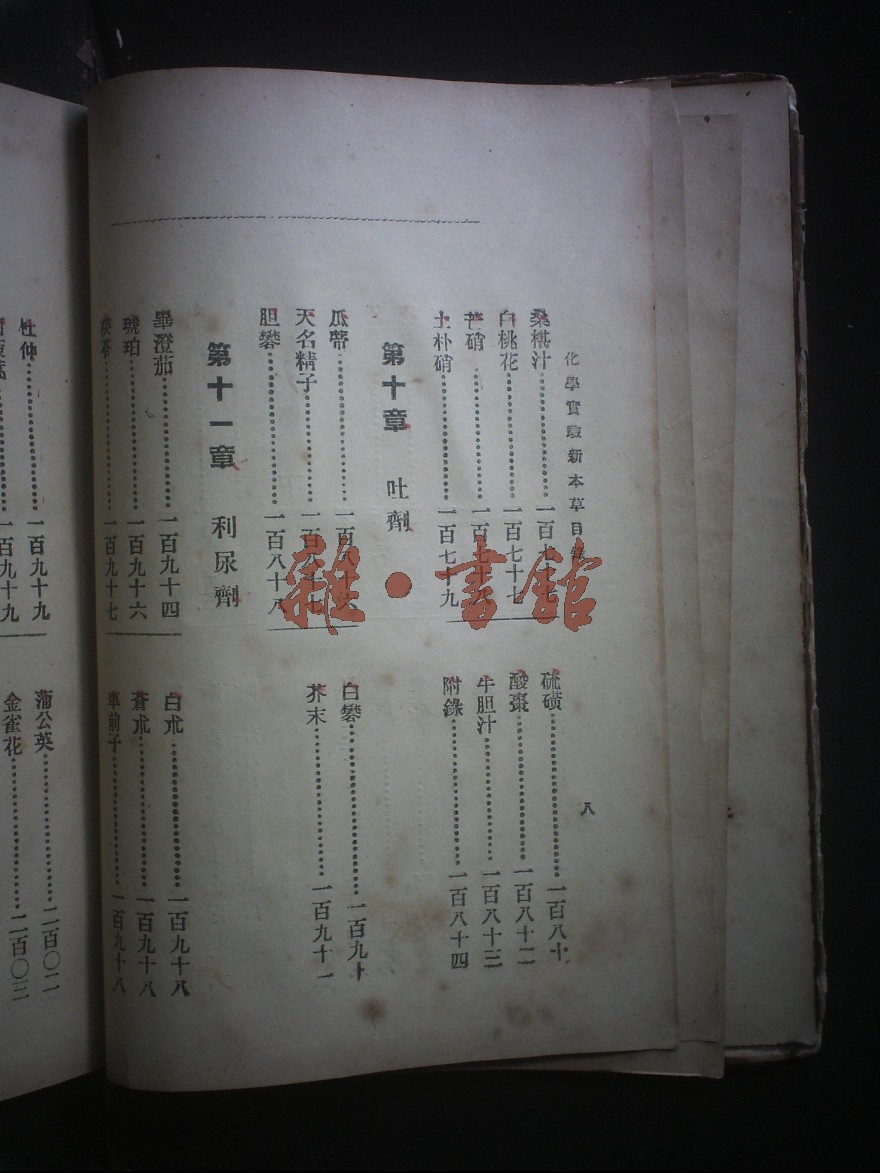 化學實驗新本草目錄
八
桑椹汁 一百七十七
白桃花 一百七十七
芒硝 一百七十八
土朴硝 一百七十九
硫磺 一百八十
酸棗 一百八十二
牛胆汁 一百八十三
附錄 一百八十四
第十章 吐劑
瓜蒂 一百八十六
天名精子 一百八十七
胆礬 一百八十八
白礬 一百九十
芥末 一百九十一
第十一章 利尿劑
畢澄茄 一百九十四
琥珀 一百九十六
茯苓 一百九十七
白朮 一百九十八
蒼朮 一百九十八
車前子 一百九十八
杜仲 一百九十九
一百九十九
蒲公英 二百〇二
金雀花 二百〇三
雜·書館